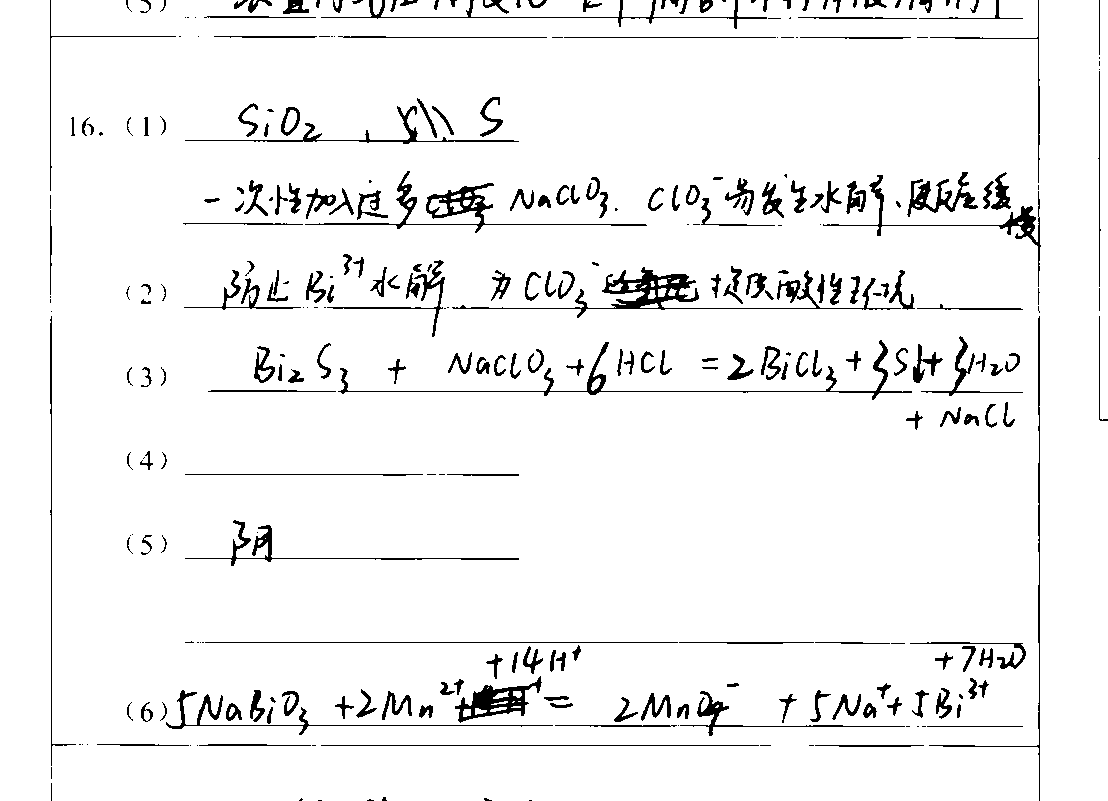 (3)
16. (1) SiO₂、S
一次性加入过多 NaClO₃. ClO₃⁻易发生水解、反应缓慢
(2) 防止Bi³⁺水解、为ClO₃⁻ 提供酸性环境.
(3) Bi₂S₃ + NaClO₃+6HCl =2BiCl₃+3S↓+3H₂O
+ NaCl
(4)
(5) 阴
+14H⁺ +7H₂O
(6) 5NaBiO₃ +2Mn²⁺ = 2MnO₄⁻ +5Na⁺+5Bi³⁺